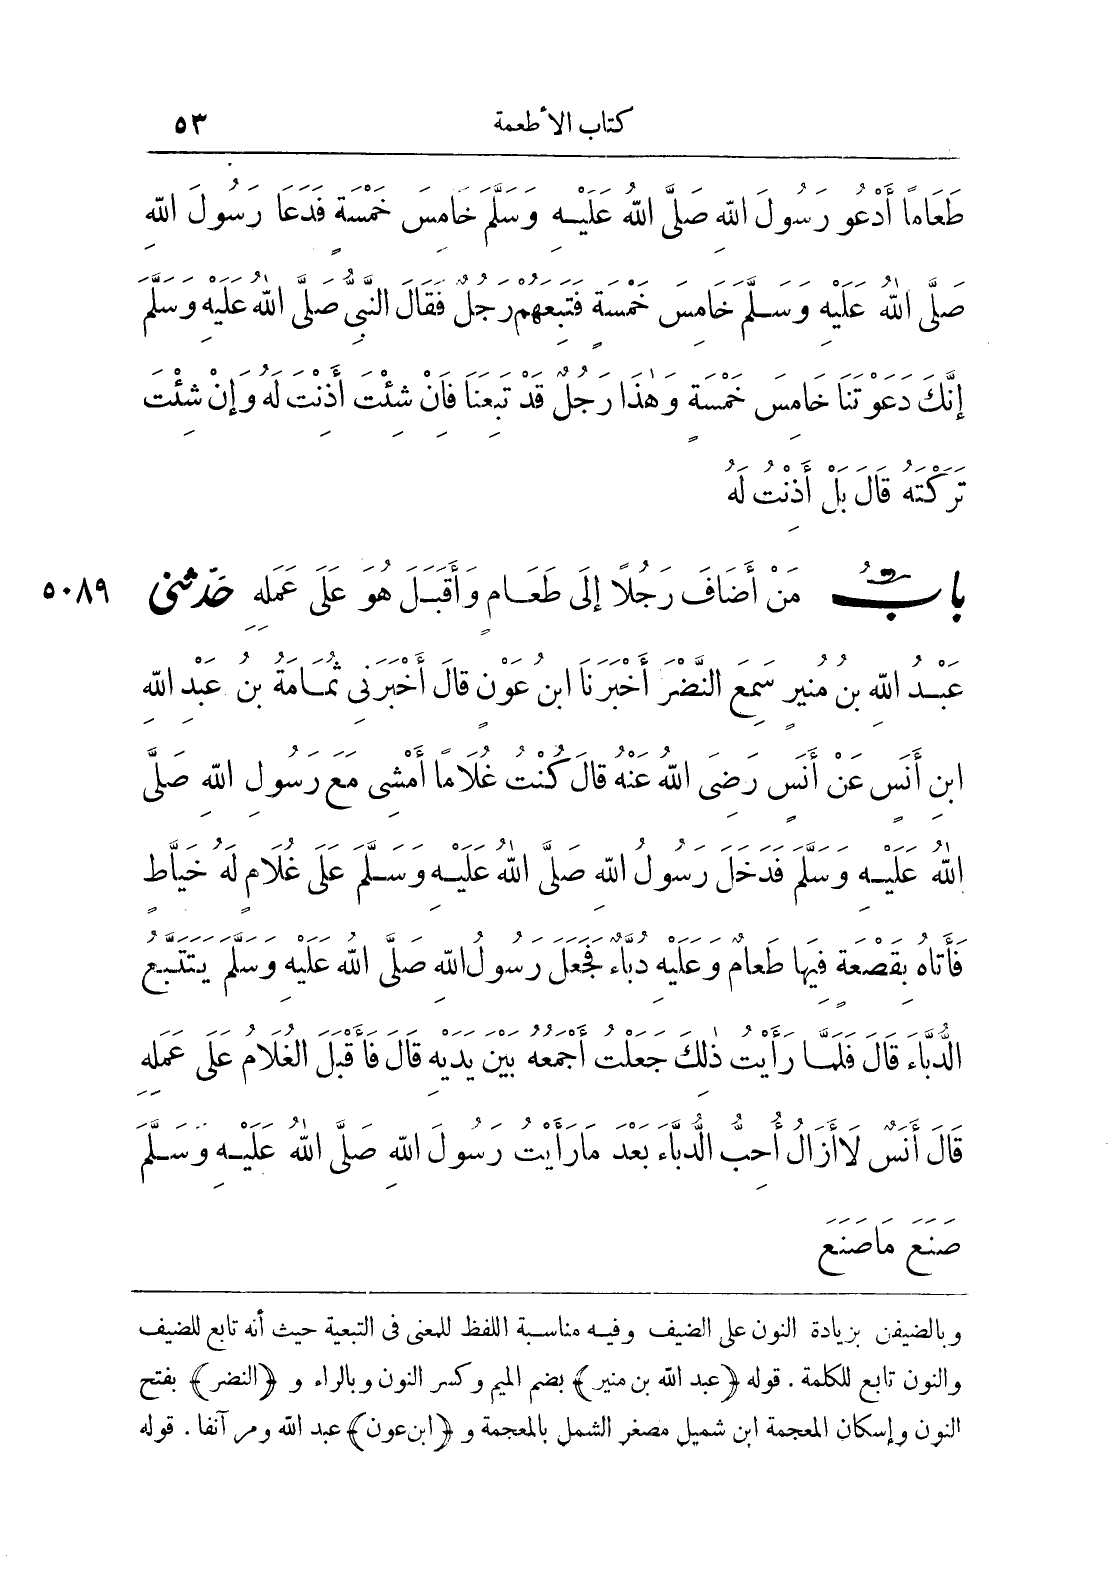 كتاب الأطعمة ٥٣
طَعَاماً أَدْعُو رَسُولَ اللهِ صَلَّى اللهُ عَلَيْهِ وَسَلَّمَ خَامِسَ خَمْسَةٍ فَدَعَا رَسُولَ اللهِ
صَلَّى اللهُ عَلَيْهِ وَسَلَّمَ خَامِسَ خَمْسَةٍ فَتَبِعَهُمْ رَجُلٌ فَقَالَ النَّبِيُّ صَلَّى اللهُ عَلَيْهِ وَسَلَّمَ
إِنَّكَ دَعَوْتَنَا خَامِسَ خَمْسَةٍ وَهٰذَا رَجُلٌ قَدْ تَبِعَنَا فَإِنْ شِئْتَ أَذِنْتَ لَهُ وَإِنْ شِئْتَ
تَرَكْتَهُ قَالَ بَلْ أَذِنْتُ لَهُ
بابُ مَنْ أَضَافَ رَجُلًا إِلَى طَعَامٍ وَأَقْبَلَ هُوَ عَلَى عَمَلِهِ حَدَّثَنِي ٥٠٨٩
عَبْدُ اللهِ بنُ مُنِيرٍ سَمِعَ النَّضْرَ أَخْبَرَنَا ابنُ عَوْنٍ قَالَ أَخْبَرَنِى ثُمَامَةُ بنُ عَبْدِ اللهِ
ابنِ أَنَسٍ عَنْ أَنَسٍ رَضِىَ اللهُ عَنْهُ قَالَ كُنْتُ غُلَاماً أَمْشِى مَعَ رَسُولِ اللهِ صَلَّى
اللهُ عَلَيْهِ وَسَلَّمَ فَدَخَلَ رَسُولُ اللهِ صَلَّى اللهُ عَلَيْهِ وَسَلَّمَ عَلَى غُلَامٍ لَهُ خَيَّاطٍ
فَأَتَاهُ بِقَصْعَةٍ فِيهَا طَعَامٌ وَعَلَيْهِ دُبَّاءٌ فَجَعَلَ رَسُولُ اللهِ صَلَّى اللهُ عَلَيْهِ وَسَلَّمَ يَتَتَبَّعُ
الدُّبَّاءَ قَالَ فَلَمَّا رَأَيْتُ ذٰلِكَ جَعَلْتُ أَجْمَعُهُ بَيْنَ يَدَيْهِ قَالَ فَأَقْبَلَ الْغُلَامُ عَلَى عَمَلِهِ
قَالَ أَنَسٌ لَا أَزَالُ أُحِبُّ الدُّبَّاءَ بَعْدَ مَا رَأَيْتُ رَسُولَ اللهِ صَلَّى اللهُ عَلَيْهِ وَسَلَّمَ
صَنَعَ مَا صَنَعَ
وبالضيفن بزيادة النون على الضيف وفيه مناسبة اللفظ للمعنى فى التبعية حيث أنه تابع للضيف
والنون تابع للكلمة . قوله ﴿عبد الله بن منير﴾ بضم الميم وكسر النون وبالراء و ﴿النضر﴾ بفتح
النون وإسكان المعجمة ابن شميل مصغر الشمل بالمعجمة و ﴿ابن عون﴾ عبد الله ومر آنفا . قوله